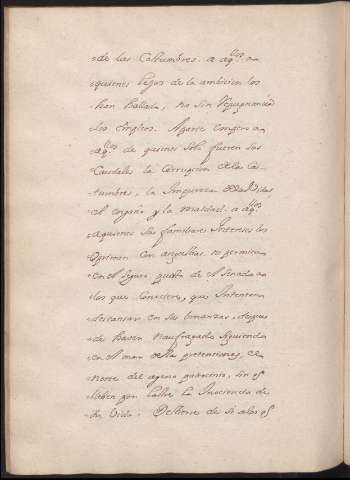 de las Costumbres. a aq.llos a
quienes lejos de la ambicion los
han hallado, no sin repugnancia
los empleos. Aparte
aq.llos de quienes solo fueron sus
Caudales la Corrupcion de las Cos-
tumbres, la Impureza de las Vidas,
el engaño y la maldad. a aq.llos
a quienes sus familiares Intereses los
Oprimen con angustias. no permita
en el seguro puesto de el Senado a
los que Conociere, que Intenten
descansar en sus bonanzas, despues
de haver Naufragado siguiendo
en el mar de las pretenciones, el
norte del ageno patrocinio, sin q.e
lleben por lastre la Inocencia de
su Vida. Destierre de si a los q.e